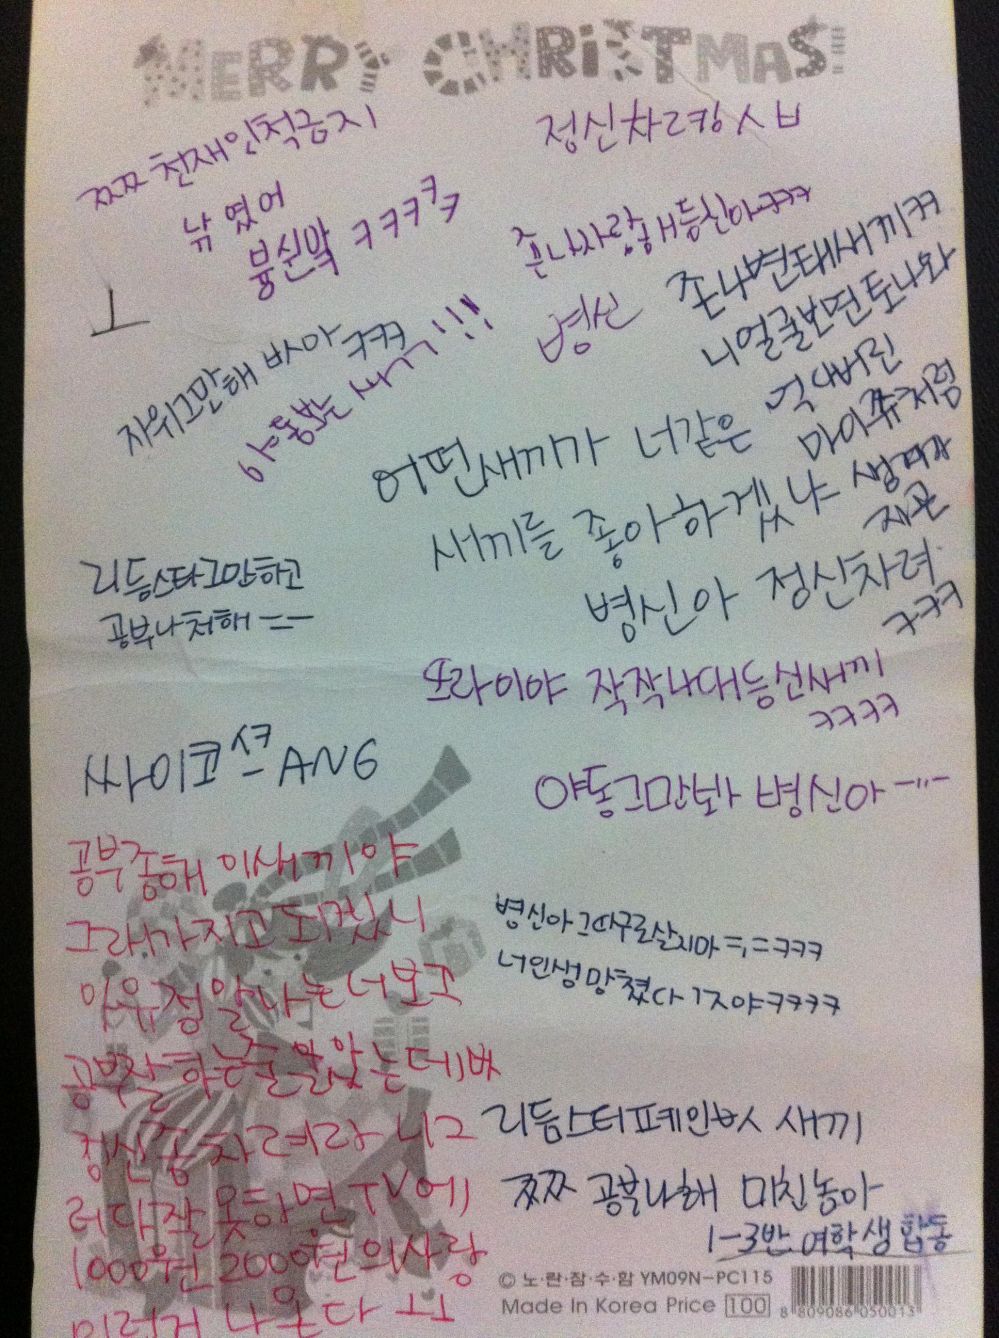 MERRY CHRISTMAS!
쯔쯔 천재인척금지
정신차려 ㅅㅂ
낚였어
븅신 ㅋㅋㅋㅋㅋ
존나사랑해등신아ㅋㅋㅋ
병신
존나변태새끼ㅋㅋ
니얼굴보면토나와
ㅗ
자위그만해 ㅋㅋㅋ
야동보는 !!!
어떤새끼가 너같은
마이쮸처럼
새끼를 좋아하겠냐
병신아 정신차려
ㅋㅋㅋ
리듬스타그만하고
공부나처해ㅡㅡ
또라이야 작작나대등신새끼
ㅋㅋㅋㅋ
싸이코 ANG
야동그만봐 병신아ㅡ"ㅡ
공부좀해 이새끼야
그래가지고되겠니
나는너보고
공부잘하는줄알았는데
정신좀차려라 니그
러다잘못하면TV에
1000원 2000원의사랑
이런거 나온다ㅋ
병신아그따구로살지마ㅋㅋㅋ
너인생망쳤다ㅋㅋㅋㅋ
리듬스터페인 새끼
쯔쯔 공부나해 미친놈아
1-3반 여학생 합동
© 노·란·잠·수·함 YM09N-PC115
Made In Korea Price 100
8 809086 050013